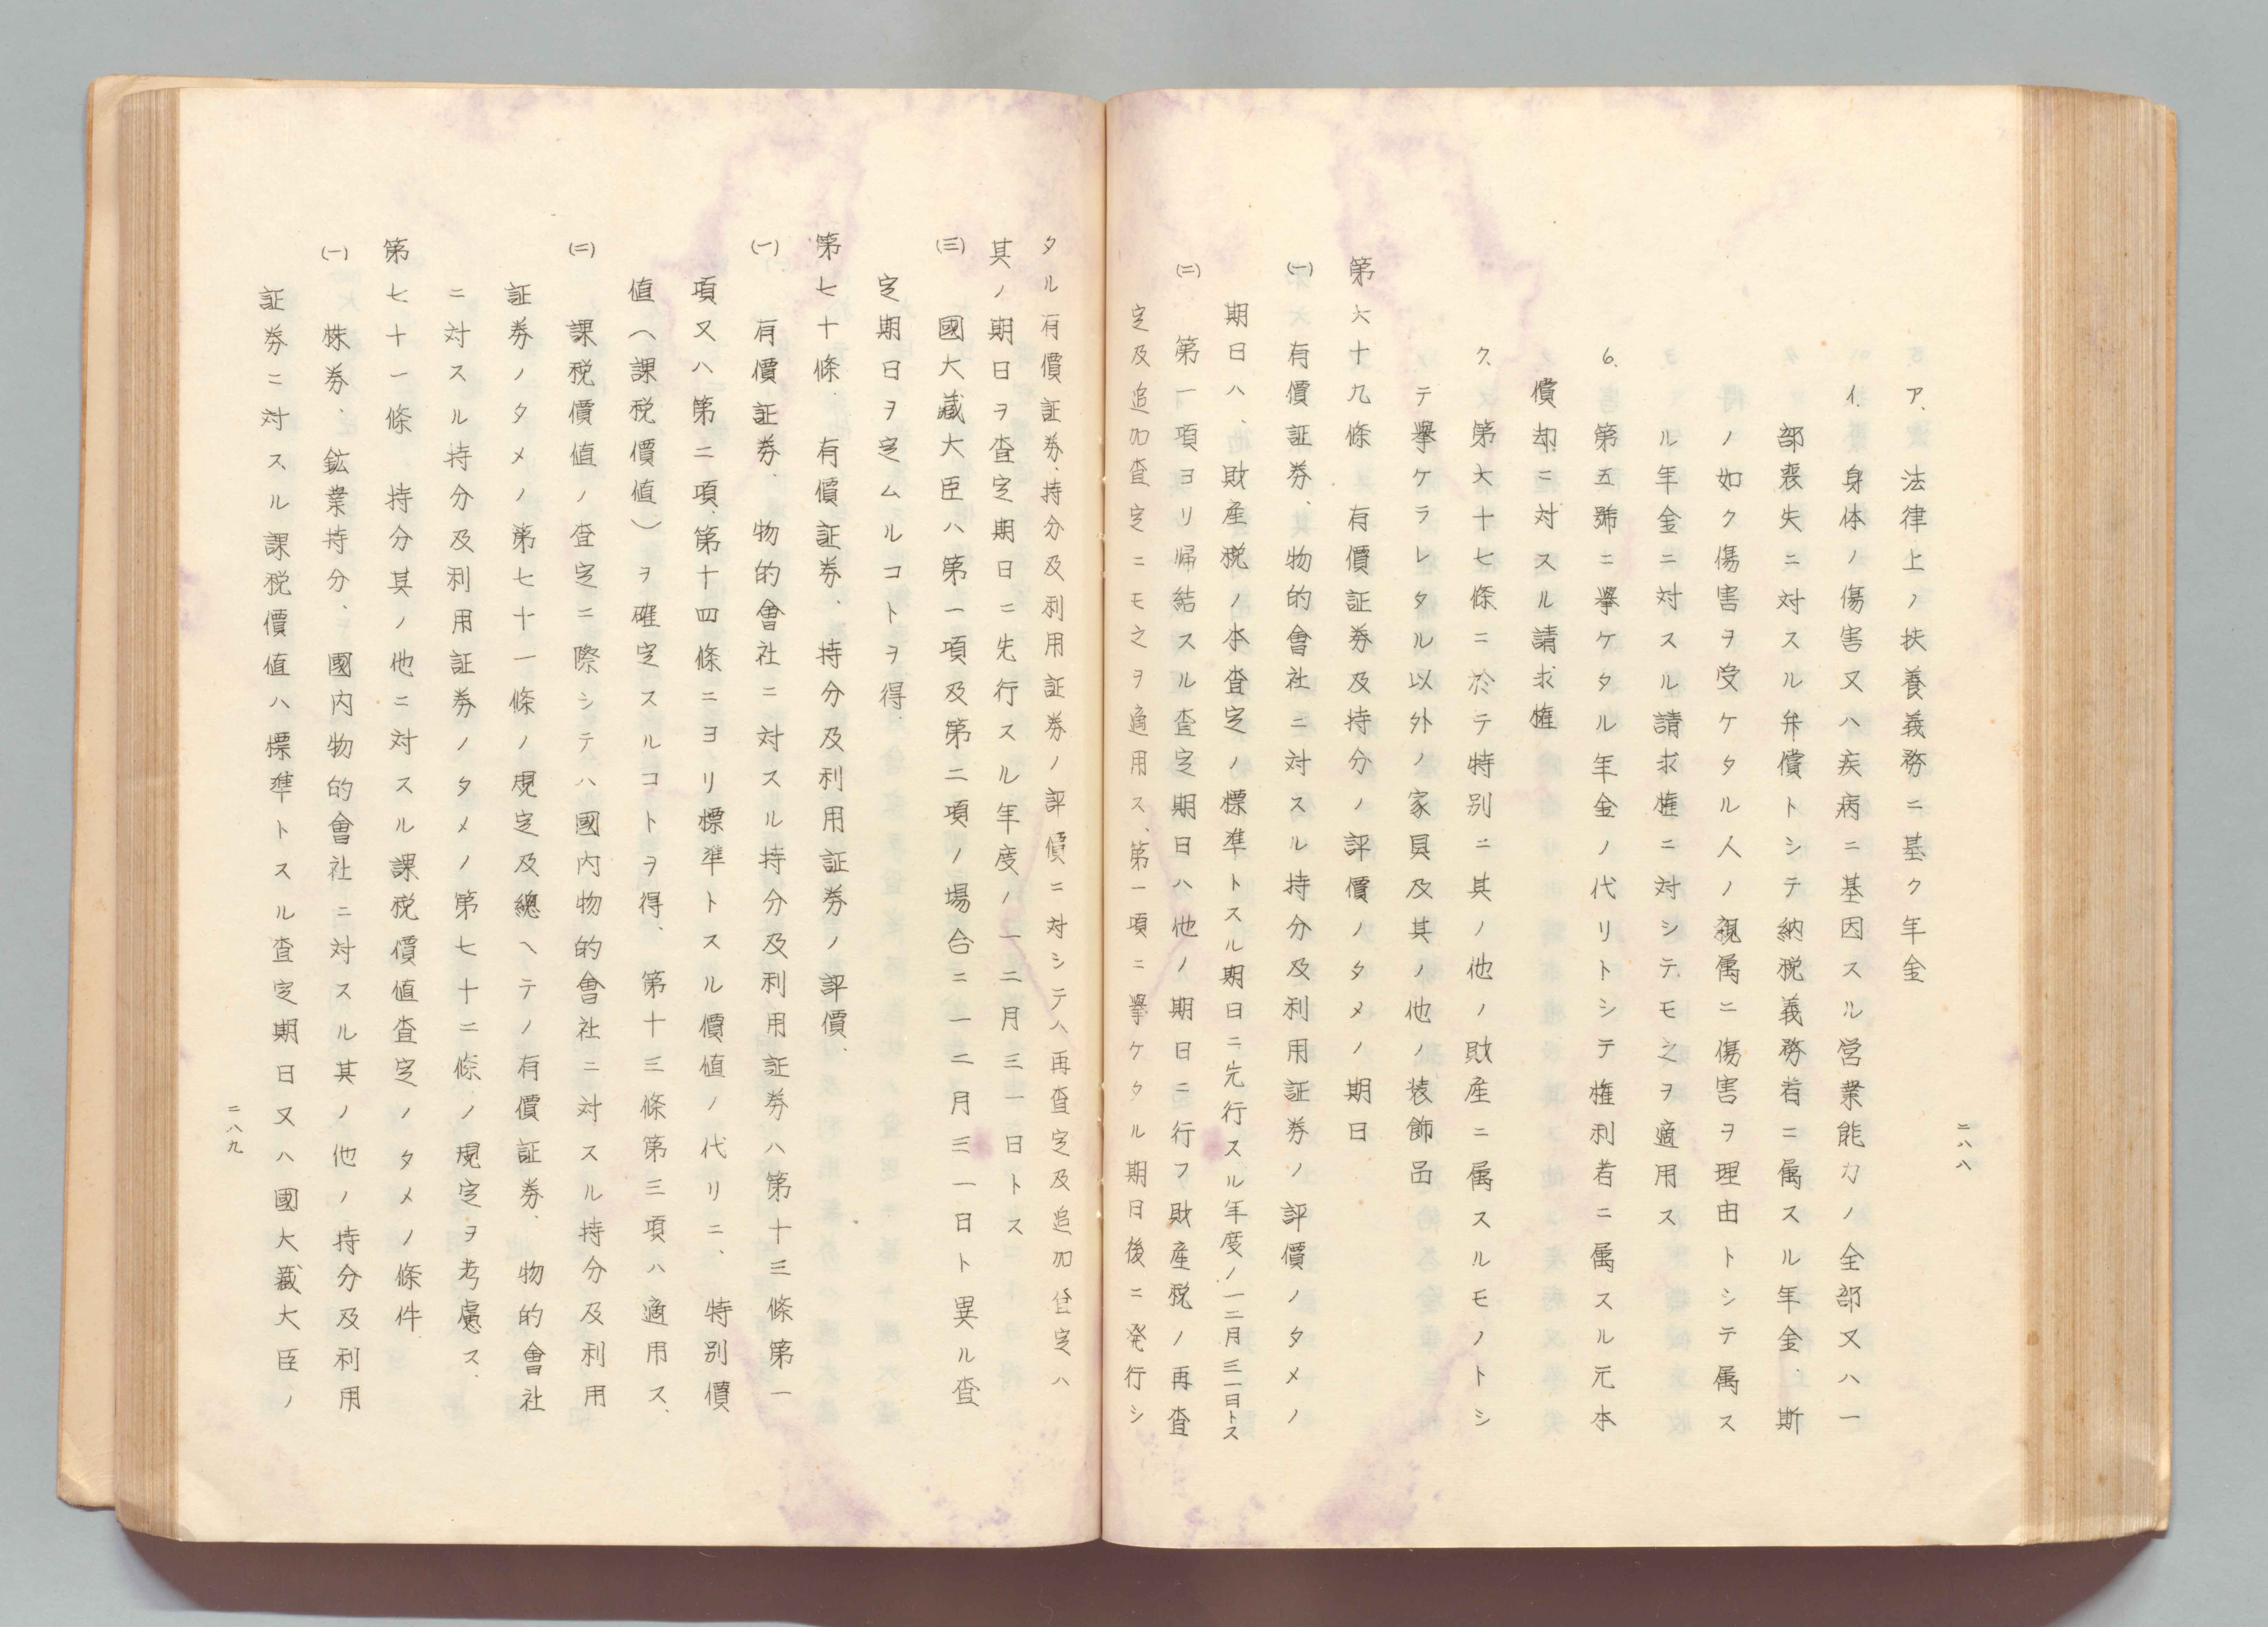 二八八
ア、法律上ノ扶養義務ニ基ク年金
イ、身体ノ傷害又ハ疾病ニ基因スル営業能力ノ全部又ハ一
部喪失ニ対スル弁償トシテ納税義務者ニ属スル年金、斯
ノ如ク傷害ヲ受ケタル人ノ親属ニ傷害ヲ理由トシテ属ス
ル年金ニ対スル請求権ニ対シテモ之ヲ適用ス
6. 第五號ニ擧ケタル年金ノ代リトシテ権利者ニ属スル元本
償却ニ対スル請求権
7. 第六十七條ニ於テ特別ニ其ノ他ノ財産ニ属スルモノトシ
テ擧ケラレタル以外ノ家具及其ノ他ノ装飾品
第六十九條 有價証券及持分ノ評價ノタメノ期日
(一) 有價証券、物的會社ニ対スル持分及利用証券ノ評價ノタメノ
期日ハ、財産税ノ本査定ノ標準トスル期日ニ先行スル年度ノ一二月三一日トス
(二) 第一項ヨリ帰結スル査定期日ハ他ノ期日ニ行フ財産税ノ再査
定及追加査定ニモ之ヲ適用ス、第一項ニ擧ケタル期日後ニ発行シ
タル有價証券、持分及利用証券ノ評價ニ対シテハ再査定及追加査定ハ
其ノ期日ヲ査定期日ニ先行スル年度ノ一二月三一日トス
(三) 國大蔵大臣ハ第一項及第二項ノ場合ニ一二月三一日ト異ル査
定期日ヲ定ムルコトヲ得、
第七十條、有價証券、持分及利用証券ノ評價、
(一) 有價証券、物的會社ニ対スル持分及利用証券ハ第十三條第一
項又ハ第二項、第十四條ニヨリ標準トスル價値ノ代リニ、特別價
値(課税價値)ヲ確定スルコトヲ得、第十三條第三項ハ適用ス、
(二) 課税價値ノ査定ニ際シテハ國内物的會社ニ対スル持分及利用
証券ノタメノ第七十一條ノ規定及總ヘテノ有價証券、物的會社
ニ対スル持分及利用証券ノタメノ第七十二條ノ規定ヲ考慮ス、
第七十一條、持分其ノ他ニ対スル課税價値査定ノタメノ條件
(一) 株券、鉱業持分、國内物的會社ニ対スル其ノ他ノ持分及利用
証券ニ対スル課税價値ハ標準トスル査定期日又ハ國大蔵大臣ノ
二八九